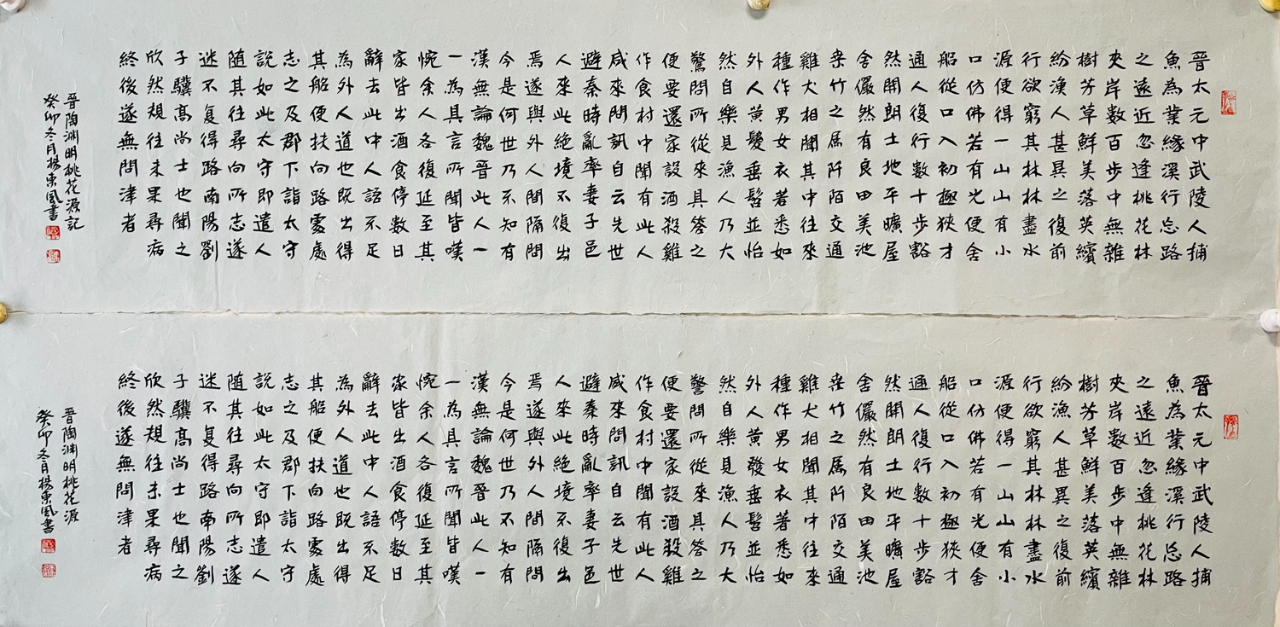 晉太元中武陵人捕
魚為業緣溪行忘路
之遠近忽逢桃花林
夾岸數百步中無雜
樹芳草鮮美落英繽
紛漁人甚異之復前
行欲窮其林林盡水
源便得一山山有小
口仿佛若有光便舍
船從口入初極狹才
通人復行數十步豁
然開朗土地平曠屋
舍儼然有良田美池
桑竹之属阡陌交通
雞犬相聞其中往來
種作男女衣著悉如
外人黃髮垂髫並怡
然自樂見漁人乃大
驚問所從來具答之
便要還家設酒殺雞
作食村中聞有此人
咸來問訊自云先世
避秦時亂率妻子邑
人來此絕境不復出
焉遂與外人間隔問
今是何世乃不知有
漢無論魏晉此人一
一為具言所聞皆嘆
惋余人各復延至其
家皆出酒食停數日
辭去此中人語不足
為外人道也既出得
其船便扶向路處處
志之及郡下詣太守
說如此太守即遣人
随其往尋向所志遂
迷不复得路南陽劉
子驥高尚士也聞之
欣然規往未果尋病
終後遂無問津者
晉陶渊明桃花源記
癸卯冬月楊東風書
晉太元中武陵人捕
魚為業緣溪行忘路
之遠近忽逢桃花林
夾岸數百步中無雜
樹芳草鮮美落英繽
紛漁人甚異之復前
行欲窮其林林盡水
源便得一山山有小
口仿佛若有光便舍
船從口入初極狹才
通人復行數十步豁
然開朗土地平曠屋
舍儼然有良田美池
桑竹之属阡陌交通
雞犬相聞其中往來
種作男女衣著悉如
外人黃發垂髫並怡
然自樂見漁人乃大
驚問所從來具答之
便要還家設酒殺雞
作食村中聞有此人
咸來問訊自云先世
避秦時亂率妻子邑
人來此絕境不復出
焉遂與外人間隔問
今是何世乃不知有
漢無論魏晉此人一
一為具言所聞皆嘆
惋余人各復延至其
家皆出酒食停數日
辭去此中人語不足
為外人道也既出得
其船便扶向路處處
志之及郡下詣太守
說如此太守即遣人
随其往尋向所志遂
迷不复得路南陽劉
子驥高尚士也聞之
欣然規往未果尋病
終後遂無問津者
晉陶渊明桃花源
癸卯冬月楊東風書